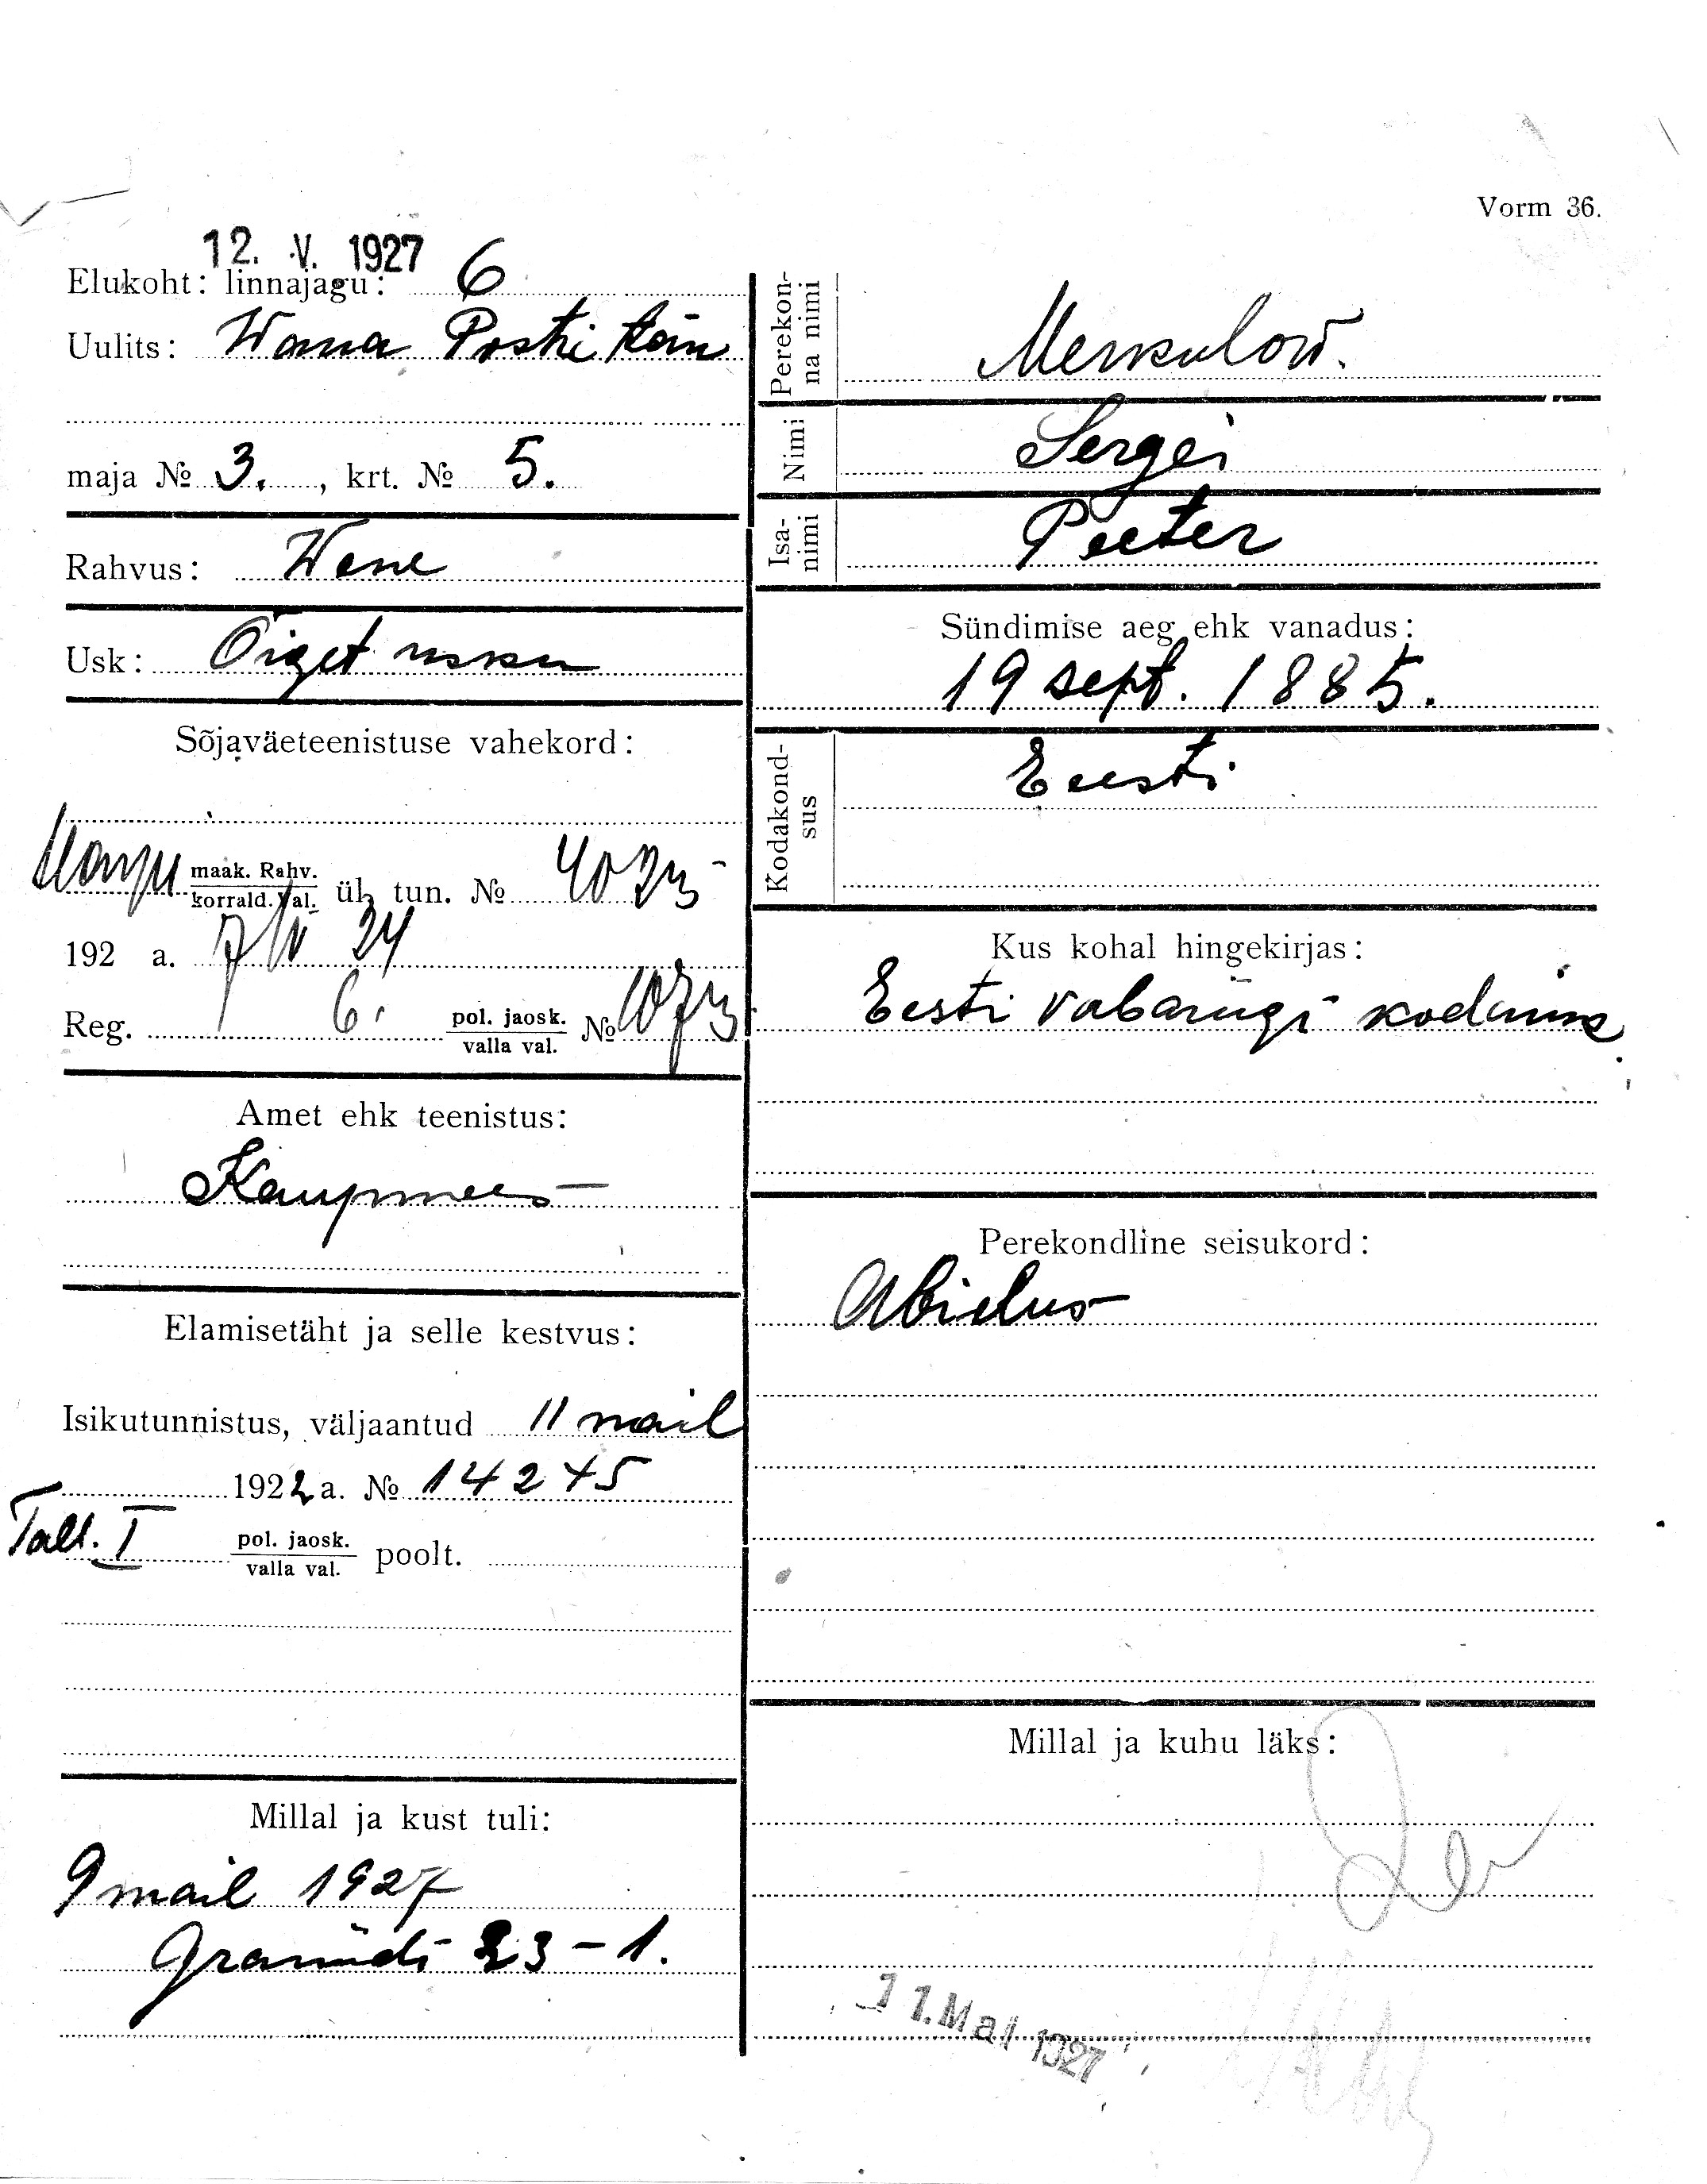 Vorm 36.
12. V. 1927
Elukoht: linnajagu: 6
Uulits: Wana Posti tän
maja № 3., krt. № 5.
Rahvus: Wene
Usk: Õiget usku
Sõjaväeteenistuse vahekord:
Harju maak. Rahv. korrald. Val. ül. tun. №
192 a. 7/IV 24
Reg. 6. pol. jaosk. valla val. №
Amet ehk teenistus:
Kaupmees
Elamisetäht ja selle kestvus:
Isikutunnistus, väljaantud 11 mail
1922 a. № 14245
Tall. I pol. jaosk. valla val. poolt.
Millal ja kust tuli:
9 mail 1927
Graniidi 23-1.
Perekonna nimi Merkulow.
Nimi Sergei
Isanimi Peeter
Sündimise aeg ehk vanadus:
19 sept. 1885.
Kodakondsus Eesti
Kus kohal hingekirjas:
Eesti vabariigi kodanik
Perekondline seisukord:
Abielus
Millal ja kuhu läks:
11. Mai 1927